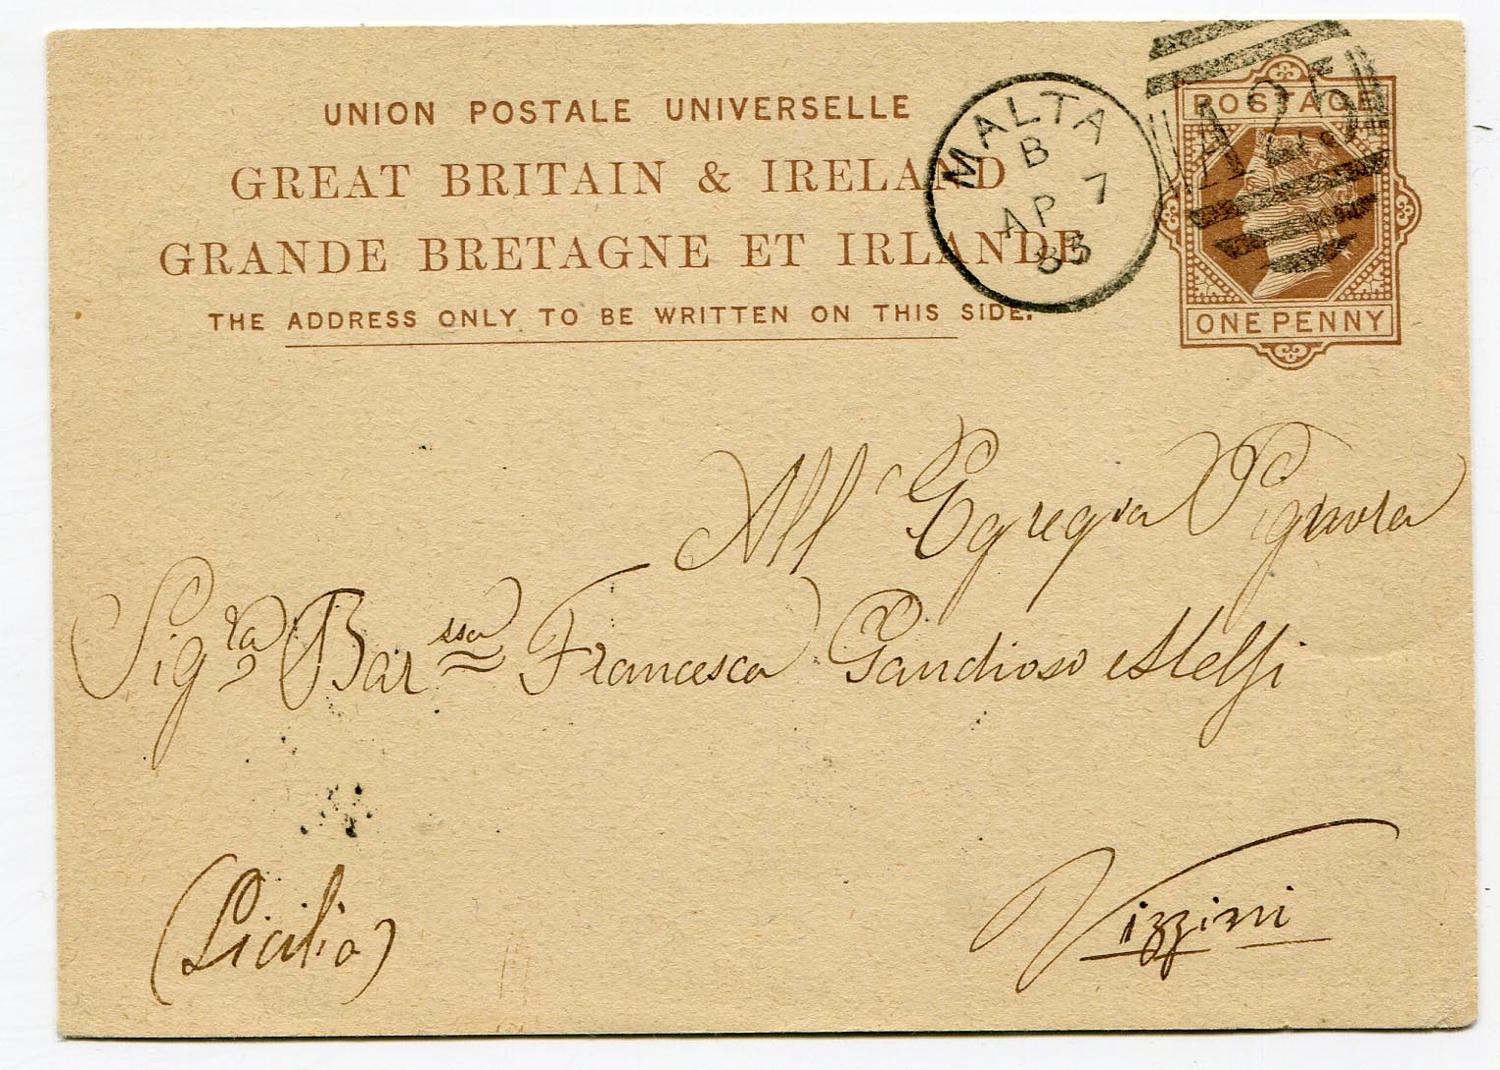 UNION POSTALE UNIVERSELLE
GREAT BRITAIN & IRELAND
GRANDE BRETAGNE ET IRLANDE
THE ADDRESS ONLY TO BE WRITTEN ON THIS SIDE.
MALTA
B
AP 7
85
A25
POSTAGE
ONE PENNY
All' Egregia Signora
Sigra Barssa Francesca Gandioso Melfi
Vizzini
(Sicilia)